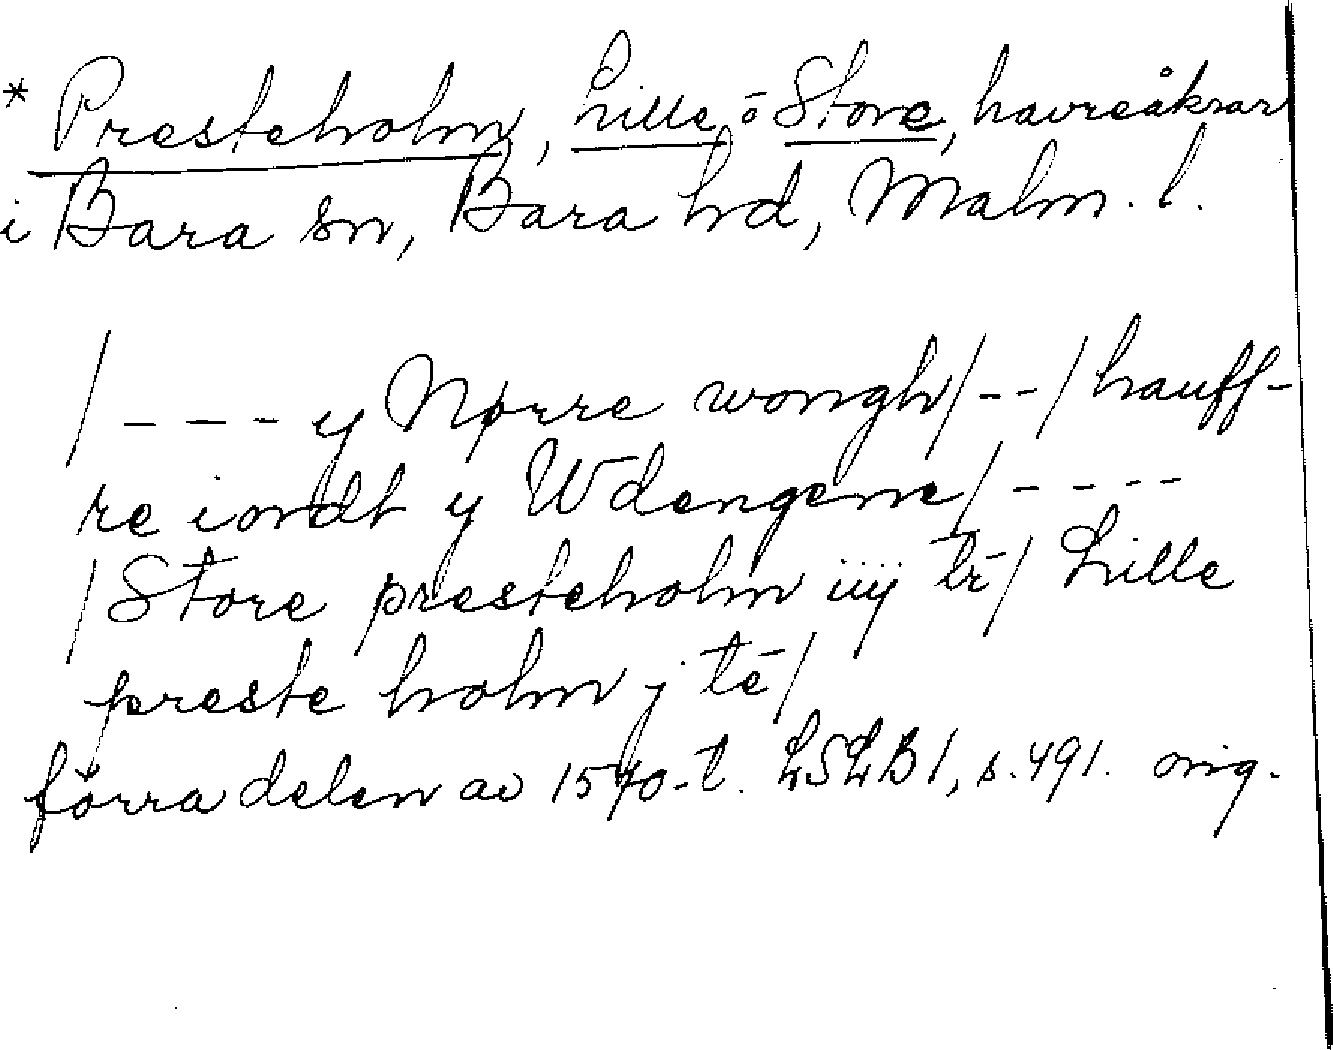 * Presteholm, Lille o Store, havreåkrar
i Bara sn, Bara hd, Malm. l.
/ - - - - y Nørre wongh / - - / hauff-
re iordt y Wdengene / - - - -
/ Store presteholm iiij tr̄ / Lille
preste holm j tē /
förra delen av 1570-t. LSLB 1, s. 491. orig.